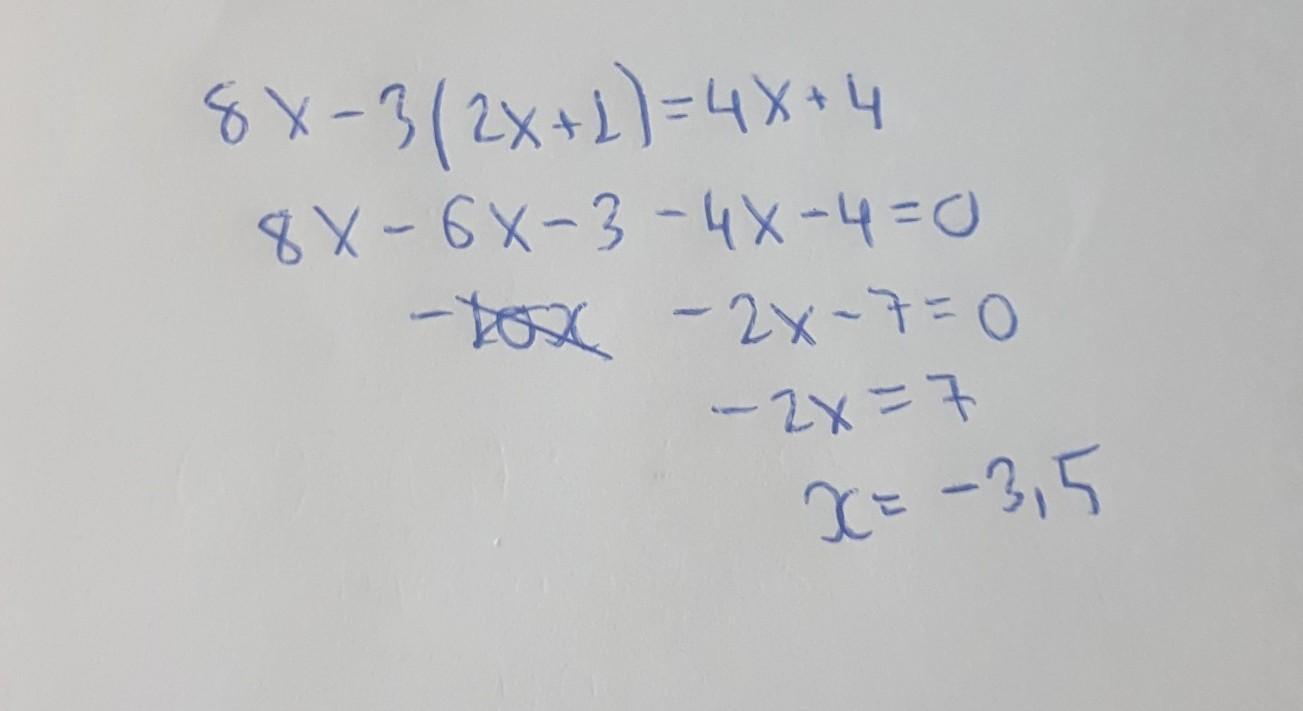 8x-3(2x+1)=4x+4
8x-6x-3-4x-4=0
-2x-7=0
-2x=7
x=-3,5